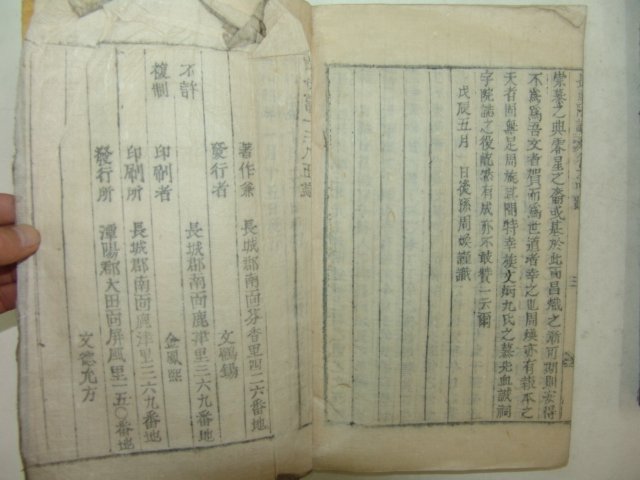 崇慕之典零星之裔或基於此而昌熾之漸可期則安得
不爲爲吾文者賀而爲世道者幸之也周煥亦有報本之
天者固與足周旋其間特幸族文炳允氏之慕先血誠祠
宇院誌之役能兼有成亦不敢贊一云爾
戊辰五月 日後孫周煥謹識
著作兼
發行者
長城郡南面芬香里四二六番地
文鶴錫
不許
複製
印刷者
長城郡南面鹿津里三六九番地
金鳳熙
印刷所
長城郡南面鹿津里三六九番地
發行所
潭陽郡大田面屛風里一五〇番地
文德允方